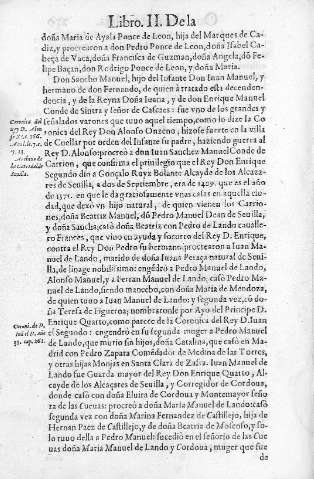 Libro. II. De la
doña Maria de Ayala Ponce de Leon, hija del Marques de Ca-
diz, y procrearon a don Pedro Ponce de Leon, doña Isabel Ca-
beça de Vaca, doña Francisca de Guzman, doña Angela, dõ Fe-
lipe Baçan, don Rodrigo Ponce de Leon, y doña Maria.
Don Sancho Manuel, hijo del Infante Don Iuan Manuel, y
hermano de don Fernando, de quien à tratado esta decenden-
dencia, y de la Reyna Doña Iuana, y de don Enrique Manuel
Conde de Sintra y señor de Cascaes: fue vno de los grandes y
señalados varones que tuuo aquel tiempo, como lo dize la Co
ronica del Rey Don Alonso Onzeno, hizose fuerte en la villa
de Cuellar por orden del Infante su padre, haziendo guerra al
Rey D. Alonso: procreò a don Iuan Sanchez Manuel Conde de
Carrion, que confirma el priuilegio que el Rey Don Enrique
Segundo dio a Gonçalo Ruyz Bolante Alcayde de los Alcaza-
res de Seuilla, a dos de Septiembre, era de 1409. que es el año
de 1371. en que le da graciosamente vnas casas en aquella ciu-
dad, que dexò vn hijo natural, de quien vienen los Carrio-
nes, doña Beatriz Manuel, dõ Pedro Manuel Dean de Seuilla,
y doña Sancha, casò doña Beatriz con Pedro de Lando caualle-
ro Frances, que vino en ayuda y socorro del Rey D. Enrique,
contra el Rey Don Pedro su hermano: procrearon a Iuan Ma-
nuel de Lando, marido de doña Iuana Peraça natural de Seui-
lla, de linage nobilissimo: engẽdrò a Pedro Manuel de Lando,
Alonso Manuel, y a Hernan Manuel de Lando, casò Pedro Ma-
nuel de Lando, siendo mancebo, con doña Maria de Mendoza,
de quien tuuo a Iuan Manuel de Lando: y segunda vez, cõ do-
ña Teresa de Figueroa; nombraronse por Ayo del Principe D.
Enrique Quarto, como parece de la Coronica del Rey D. Iuan
el Segundo: engendrò en su segunda muger a Pedro Manuel
de Lando, que murio sin hijos, doña Catalina, que casò en Ma-
drid con Pedro Zapata Comẽdador de Medina de las Torres,
y otras hijas Monjas en Santa Clara de
Iuan Manuel de
Lando fue Guarda mayor del Rey Don Enrique Quarto, Al-
cayde de los Alcaçares de Seuilla, y Corregidor de Cordoua,
donde casò con doña Eluira de Cordoua y Montemayor seño
ra de las Cueuas: procreò a doña Maria Manuel de Lando: casò
segunda vez con doña Marina Fernandez de Castillejo, hija de
Hernan Paez de Castillejo, y de doña Beatriz de Moscoso, y so-
lo tuuo della a Pedro Manuel: sucediò en el señorio de las Cue
uas doña Maria Manuel de Lando y Cordoua, muger que fue
da